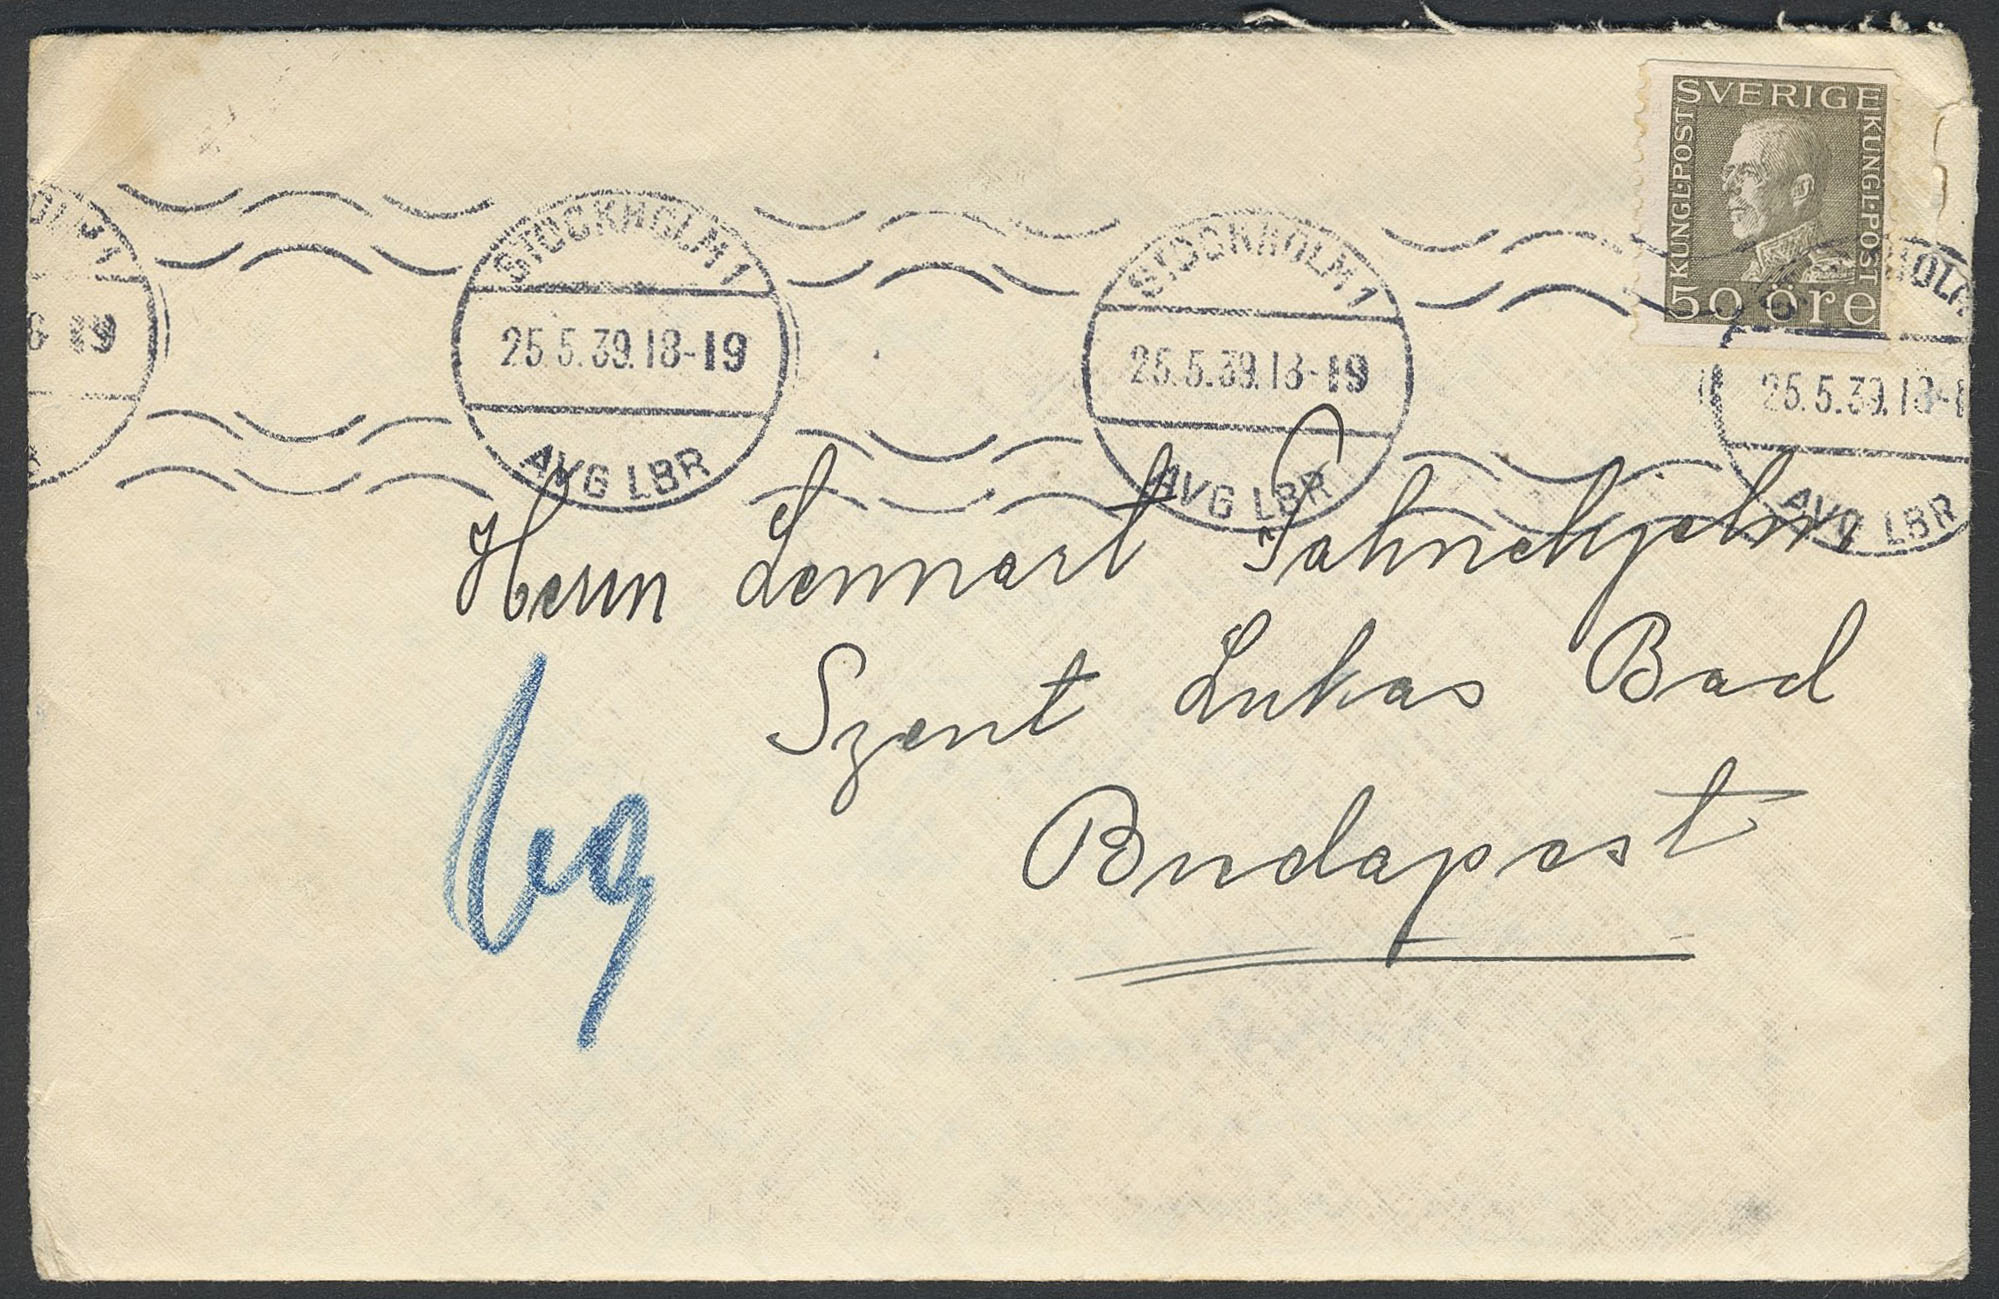 SVERIGE
KUNGL·POST
KUNGL·POST
50 öre
STOCKHOLM 1
25.5.39.18-19
AVG LBR
STOCKHOLM 1
25.5.39.18-19
AVG LBR
25.5.39.18-1
AVG LBR
19
Herrn Lennart
Szent Lukas Bad
Budapest